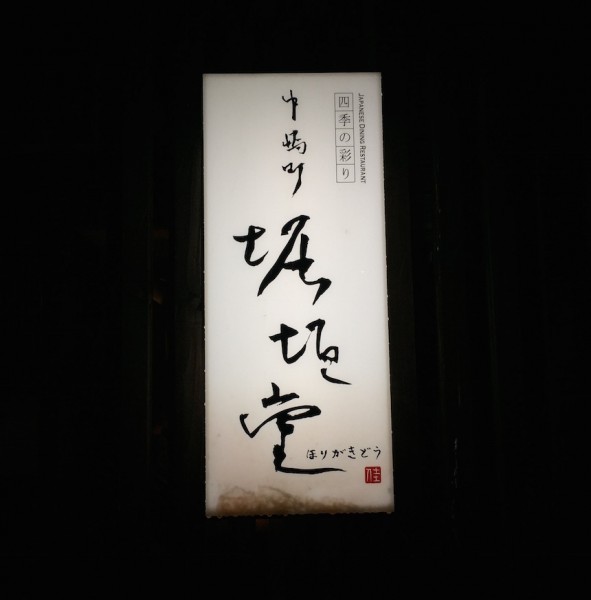 JAPANESE DINING RESTAURANT
四季の彩り
中嶋町
堀垣堂
ほりがきどう
佳